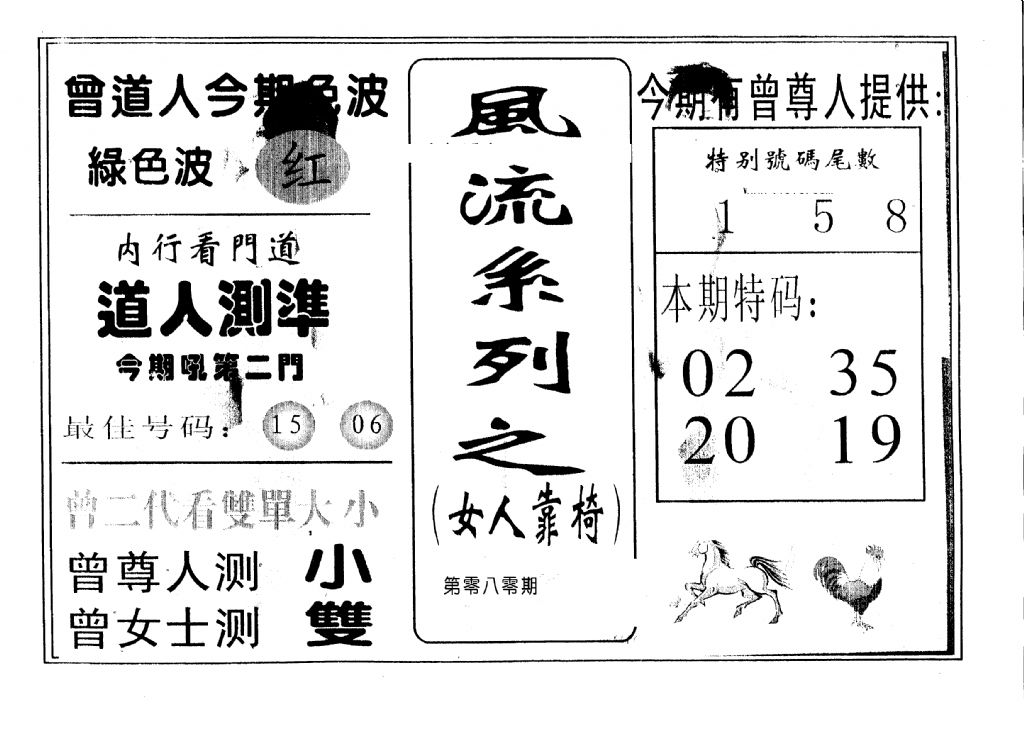 曾道人今期色波
綠色波
红
内行看門道
道人測準
今期吼第二門
最佳号码：
15
06
曾二代看雙單大小
曾尊人测 小
曾女士测 雙
風流系列之
（女人靠椅）
第零八零期
今期有曾尊人提供：
特别號碼尾數
1 5 8
本期特码：
02 35
20 19